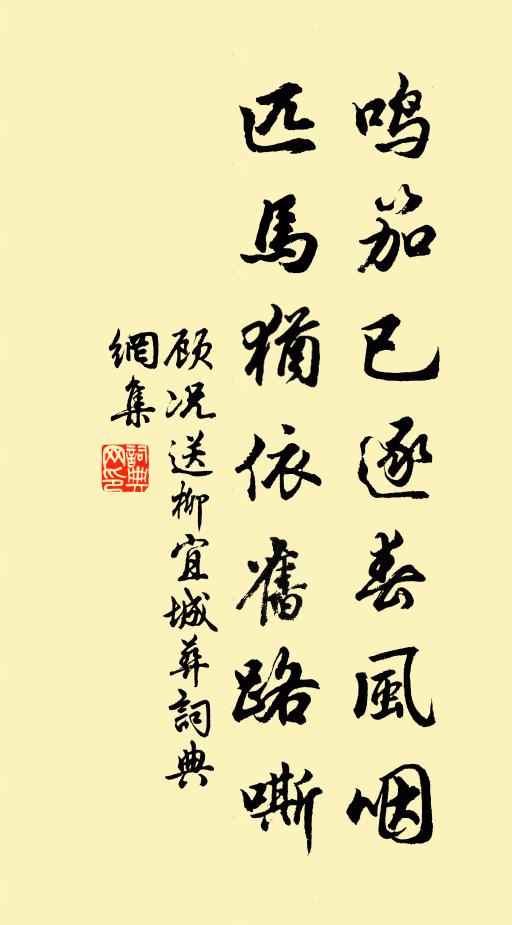 鸣笳已逐春風咽
匹馬猶依舊路嘶
顾况送柳宜城葬詞典
網集
詞典
网印